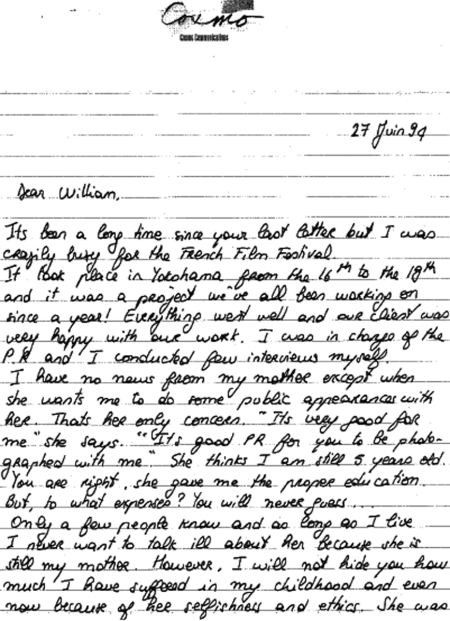 Cosmo
Cosmo Communications
27 Juin 94
Dear William,
Its been a long time since your last letter but I was
crazily busy for the French Film Festival.
It took place in Yokohama from the 16th to the 19th
and it was a project we've all been working on
since a year! Everything went well and our client was
very happy with our work. I was in charge of the
P.R and I conducted few interviews myself.
I have no news from my mother except when
she wants me to do some public appearances with
her. Thats her only concern. "Its very good for
me" she says. "It's good PR for you to be photo-
graphed with me". She thinks I am still 5 years old.
You are right, she gave me the proper education.
But, to what expenses? You will never guess...
Only a few people know and as long as I live
I never want to talk ill about her because she is
still my mother. However, I will not hide you how
much I have suffered in my childhood and even
now because of her selfishness and ethics. She was